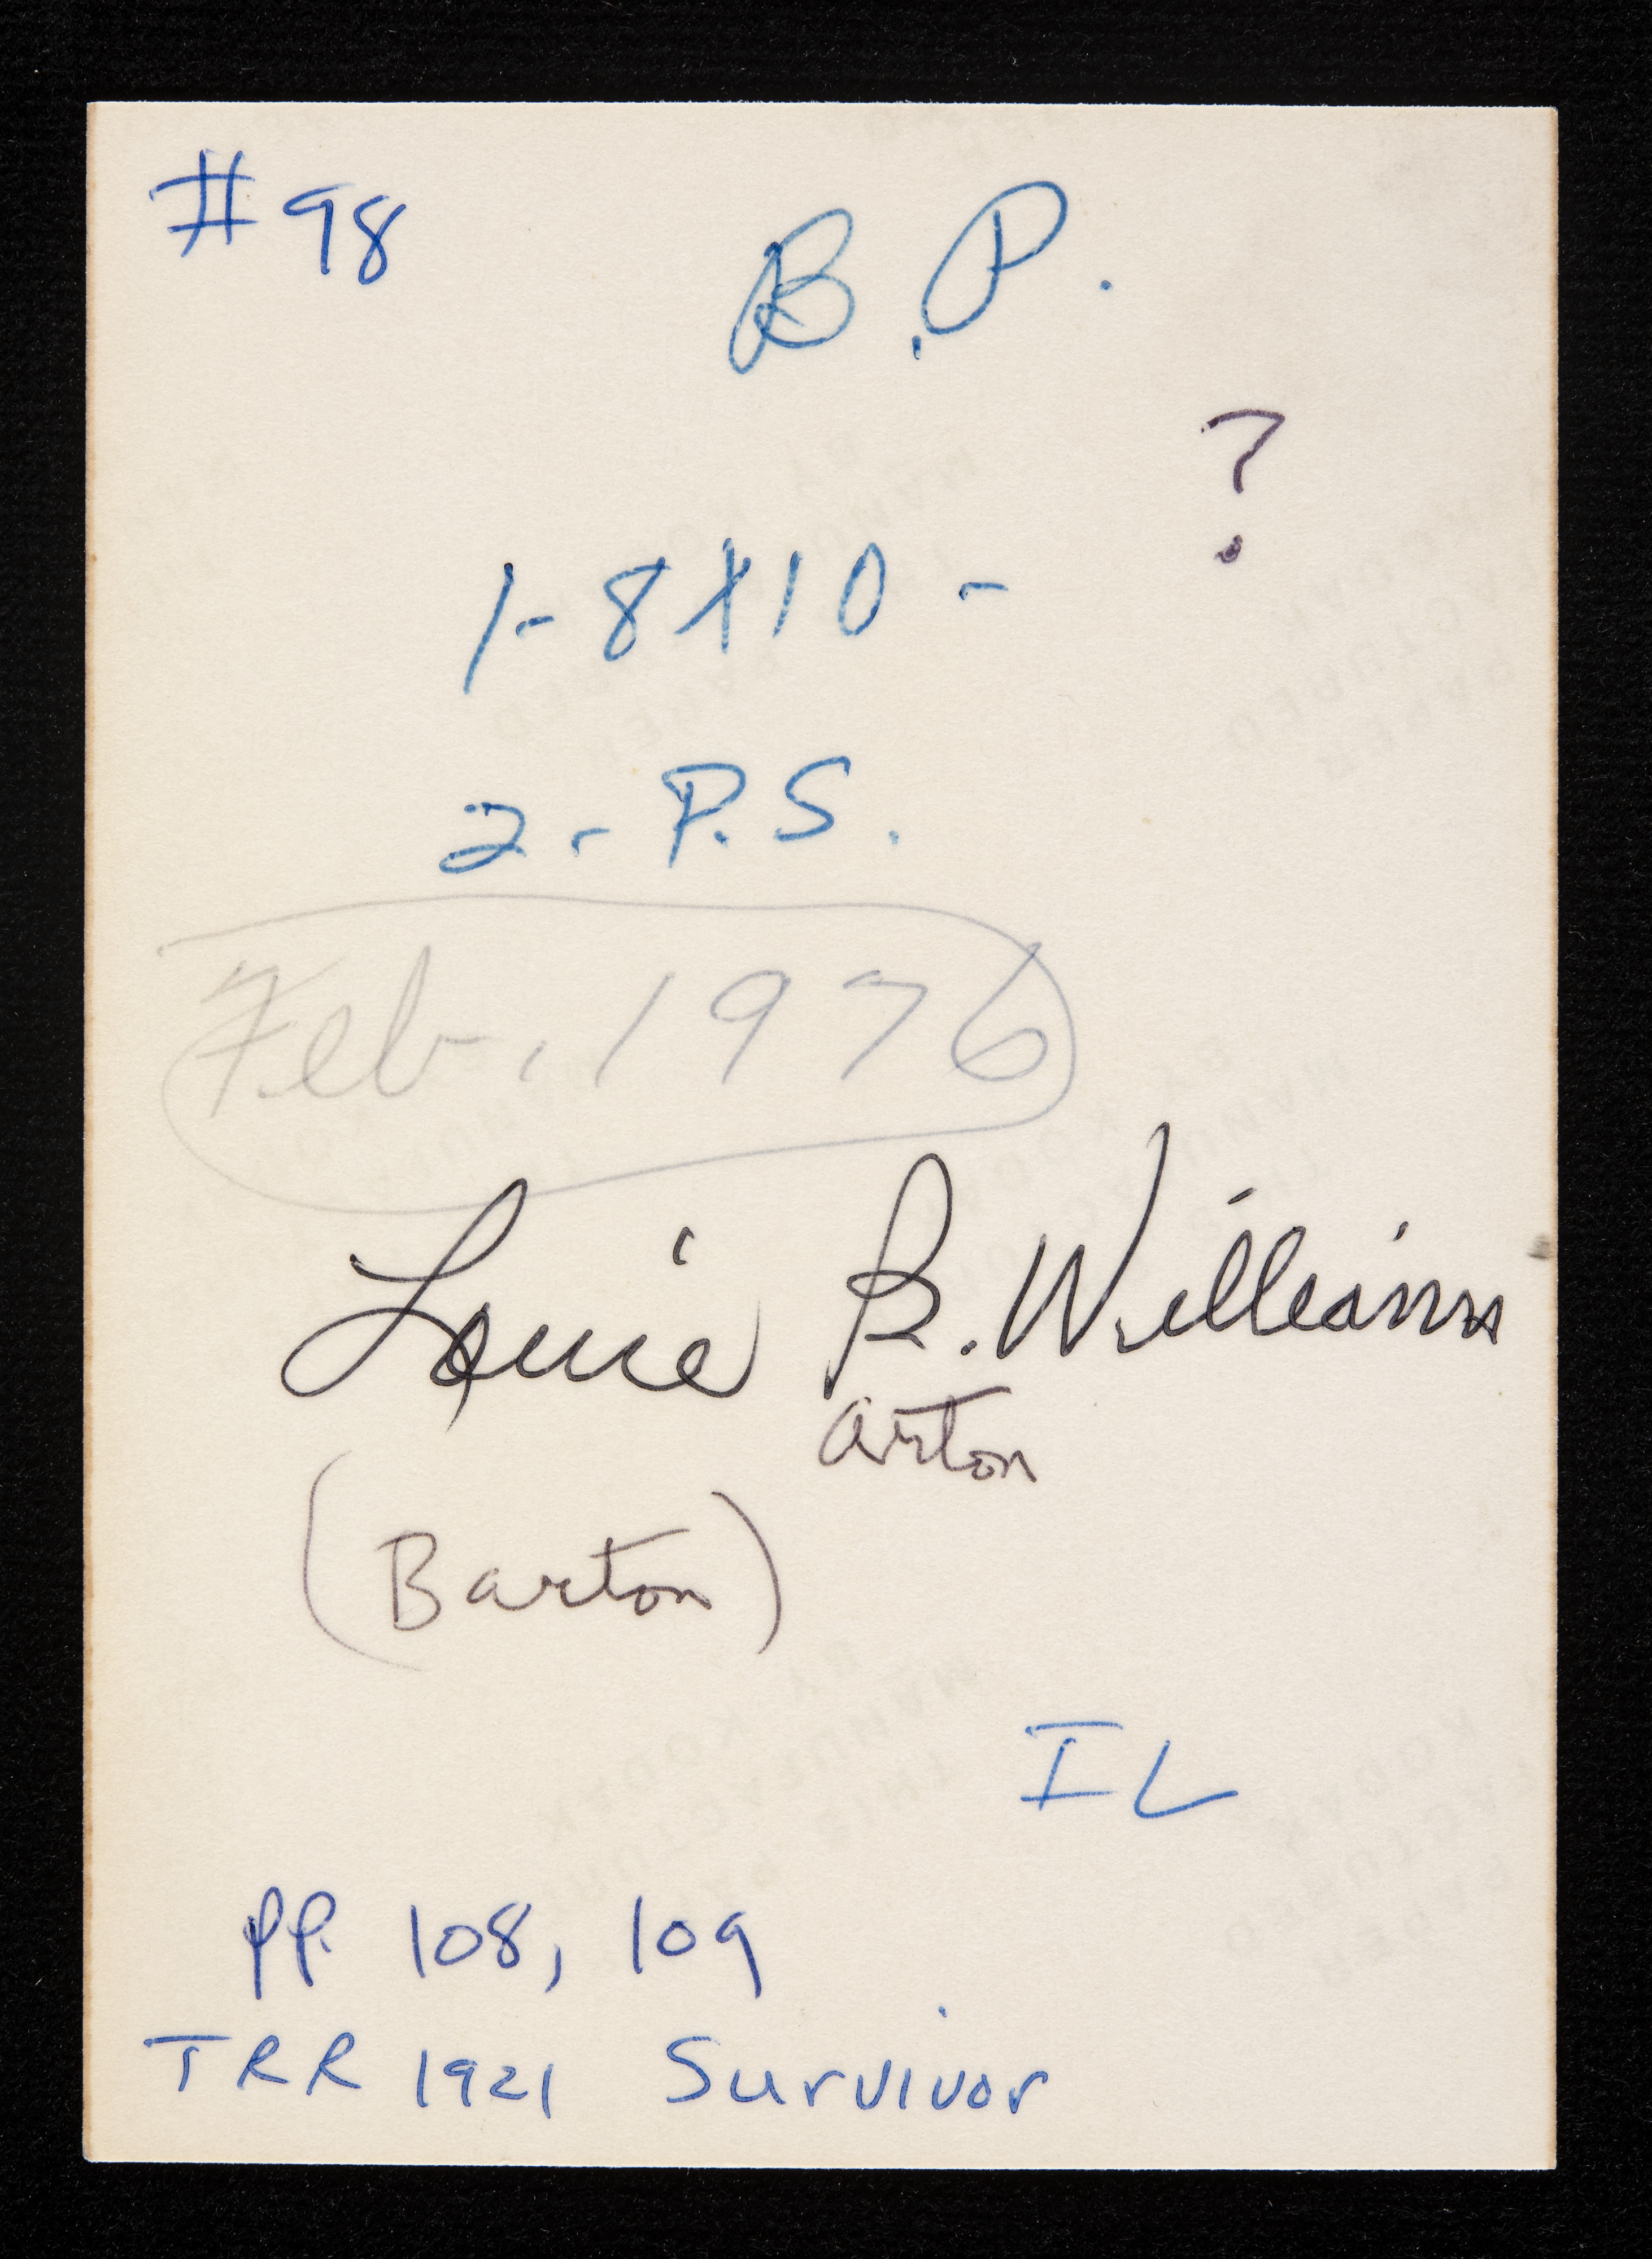 #98
B.P.
?
1-8X10-
2-P.S.
Feb. 1976
Louie B. Williams
arton
(Barton)
IL
pp. 108, 109
TRR 1921 Survivor